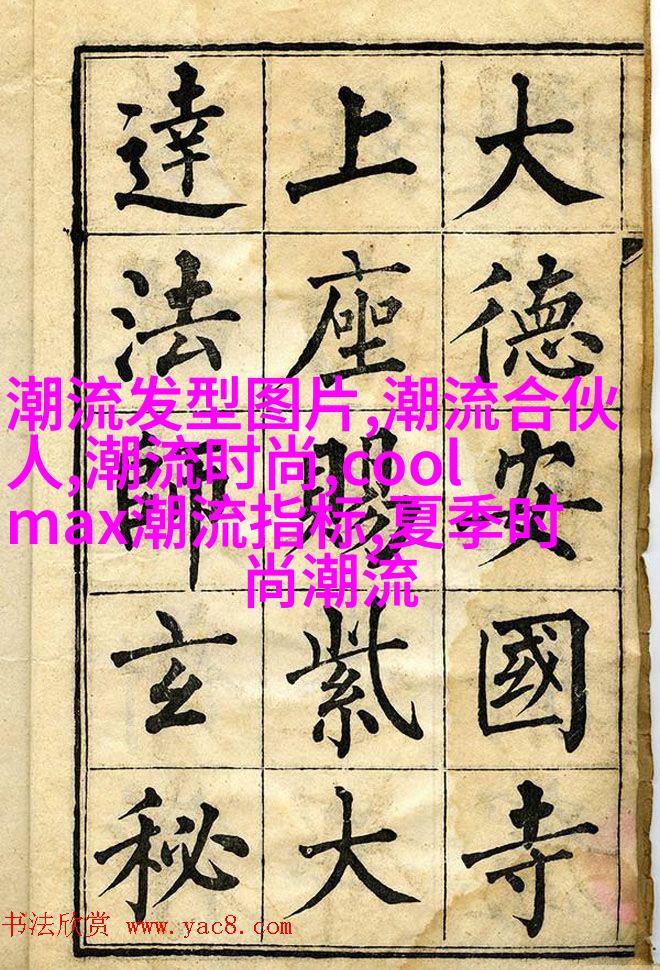 大德安國寺
上座賜紫大
達法師玄秘
潮流发型图片,潮流合伙
人,潮流时尚,cool
max潮流指标,夏季时
尚潮流
书法欣赏 www.yac8.com